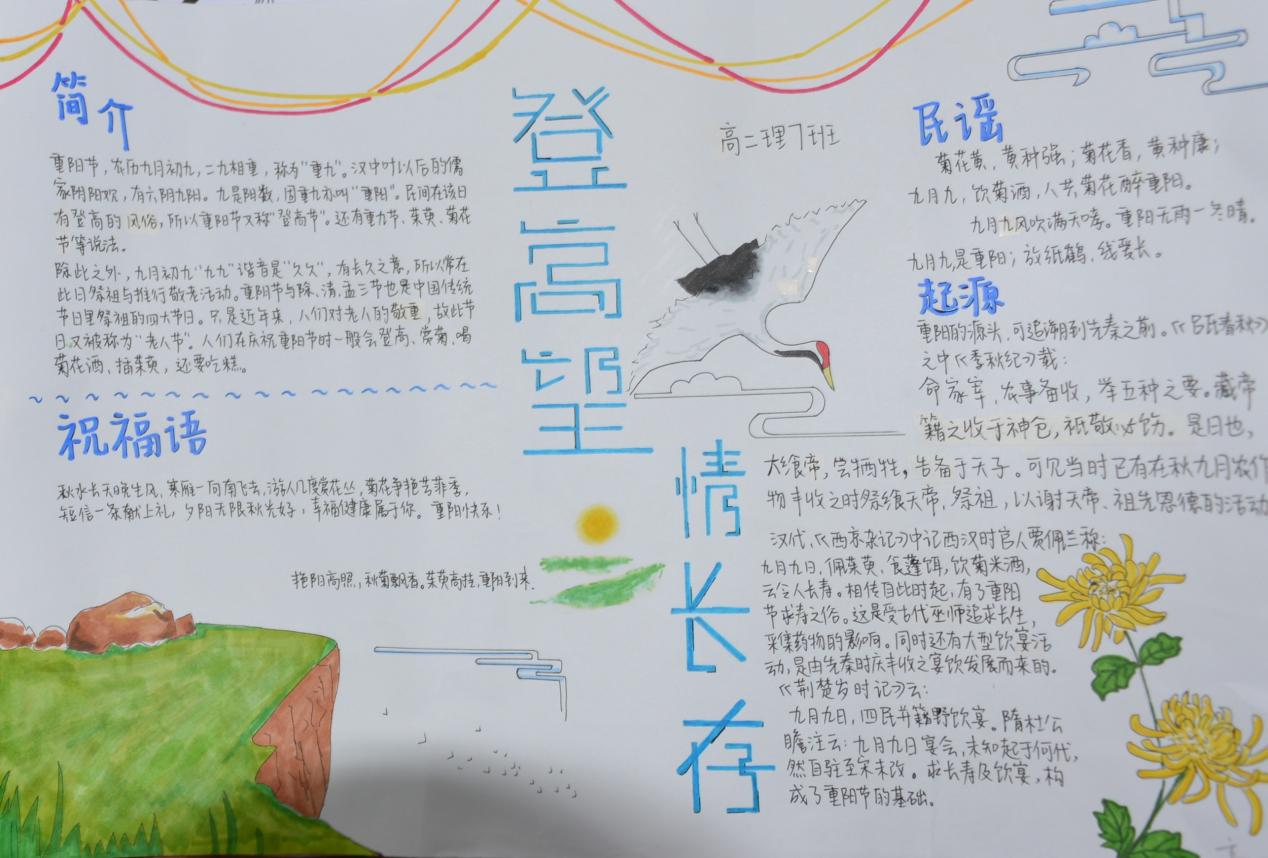 简介
重阳节，农历九月初九，二九相重，称为"重九"。汉中叶以后的儒
家阴阳观，有六阴九阳。九是阳数，固重九亦叫"重阳"。民间在该日
有登高的风俗，所以重阳节又称"登高节"。还有重九节、茱萸、菊花
节等说法。
除此之外，九月初九"九九"谐音是"久久"，有长久之意，所以常在
此日祭祖与推行敬老活动。重阳节与除、清、盂三节也是中国传统
节日里祭祖的四大节日。只是近年来，人们对老人的敬重，故此节
日又被称为"老人节"。人们在庆祝重阳节时一般会登高、赏菊、喝
菊花酒、插茱萸，还要吃糕。
祝福语
秋水长天晚生风，寒雁一向南飞去，游人几度赏花丛，菊花争艳芳菲季，
短信一条献上礼，夕阳无限秋光好，幸福健康属于你。重阳快乐！
艳阳高照，秋菊飘香。茱萸高挂，重阳到来.
登高望
情长存
高二理7班
民谣
菊花黄，黄种强；菊花香，黄种康；
九月九，饮菊酒，人共菊花醉重阳。
九月九风吹满天哮。重阳无雨一冬晴。
九月九是重阳；放纸鹤，线爱长。
起源
重阳的源头，可追溯到先秦之前。《吕氏春秋》
之中《季秋纪》载：
命家宰，农事备收，举五种之要。藏帝
籍之收于神仓，祗敬必饬。是日也，
大飨帝，尝牺牲，告备于天子。可见当时已有在秋九月农作
物丰收之时祭飨天帝、祭祖，以谢天帝、祖先恩德的活动
汉代，《西京杂记》中记西汉时宫人贾佩兰称：
九月九日，佩茱萸，食蓬饵，饮菊米酒，
云令人长寿。相传自此时起，有了重阳
节求寿之俗。这是受古代巫师追求长生，
采集药物的影响。同时还有大型饮宴活
动，是由先秦时庆丰收之宴饮发展而来的.
《荆楚岁时记》云：
九月九日，四民并籍野饮宴。隋杜公
瞻注云：九月九日宴会，未知起于何代，
然自驻至宋未改。求长寿及饮宴，构
成了重阳节的基础。